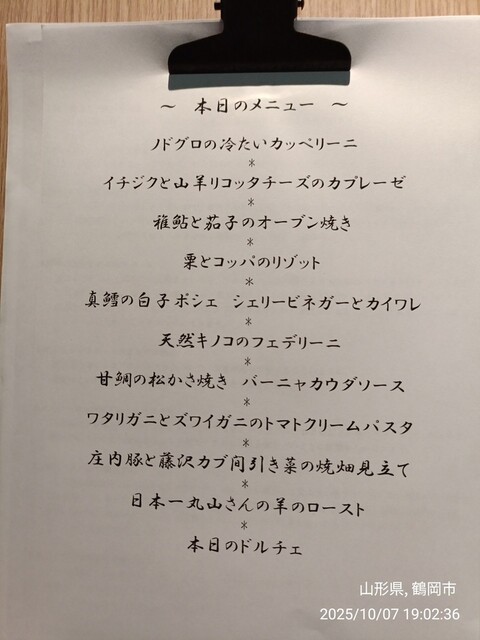 ～ 本日のメニュー ～
ノドグロの冷たいカッペリーニ
*
イチジクと山羊リコッタチーズのカプレーゼ
*
稚鮎と茄子のオーブン焼き
*
栗とコッパのリゾット
*
真鱈の白子ポシェ シェリービネガーとカイワレ
*
天然キノコのフェデリーニ
*
甘鯛の松かさ焼き バーニャカウダソース
*
ワタリガニとズワイガニのトマトクリームパスタ
*
庄内豚と藤沢カブ間引き菜の焼畑見立て
*
日本一丸山さんの羊のロースト
*
本日のドルチェ
山形県, 鶴岡市
2025/10/07 19:02:36